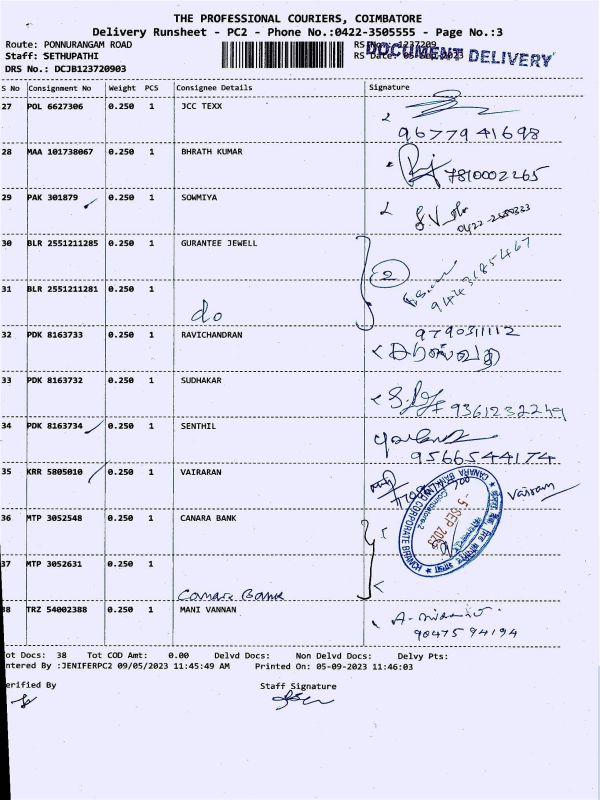 THE PROFESSIONAL COURIERS, COIMBATORE
Delivery Runsheet - PC2 - Phone No.:0422-3505555 - Page No.:3
Route: PONNURANGAM ROAD
RS No.: 1237209
DOCUMENT DELIVERY
Staff: SETHUPATHI
RS Date: 05 Sep 2023
DRS No.: DCJB123720903
S No Consignment No Weight PCS Consignee Details Signature
27 POL 6627306 0.250 1 JCC TEXX
9677941698
28 MAA 101738067 0.250 1 BHRATH KUMAR
7810002265
29 PAK 301879 0.250 1 SOWMIYA
30 BLR 2551211285 0.250 1 GURANTEE JEWELL
2
9443185467
31 BLR 2551211281 0.250 1
do
32 PDK 8163733 0.250 1 RAVICHANDRAN
9790311112
33 PDK 8163732 0.250 1 SUDHAKAR
9361232249
34 PDK 8163734 0.250 1 SENTHIL
9566544174
35 KRR 5805010 0.250 1 VAIRARAN
Vairam
36 MTP 3052548 0.250 1 CANARA BANK
CANARA BANK
CORPORATE BRANCH
Coimbatore-2
5 SEP 2023
37 MTP 3052631 0.250 1
Canara Bank
38 TRZ 54002388 0.250 1 MANI VANNAN
9047594194
Tot Docs: 38 Tot COD Amt: 0.00 Delvd Docs: Non Delvd Docs: Delvy Pts:
ntered By :JENIFERPC2 09/05/2023 11:45:49 AM Printed On: 05-09-2023 11:46:03
erified By Staff Signature